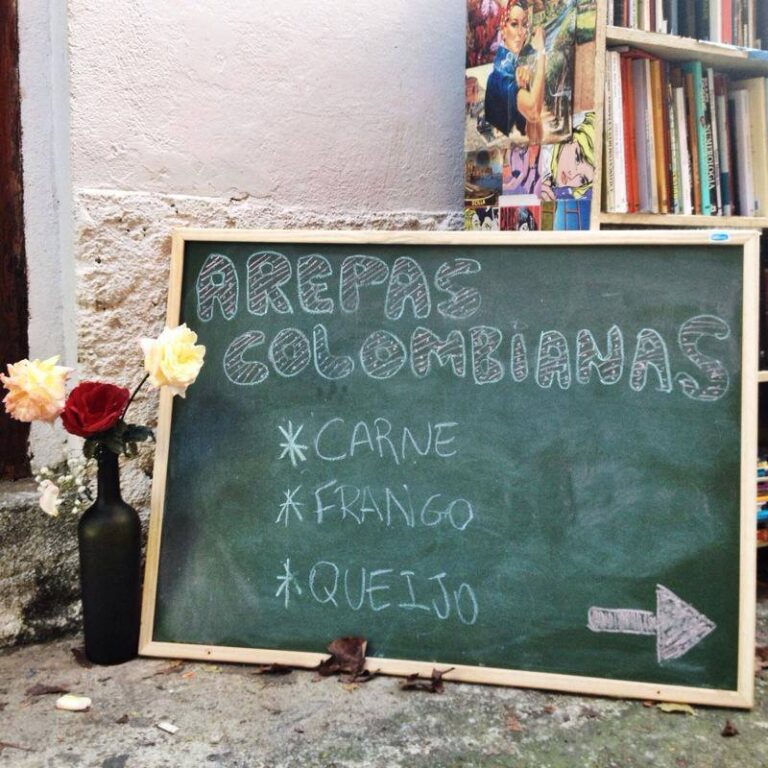 AREPAS
COLOMBIANAS
* CARNE
* FRANGO
* QUEIJO